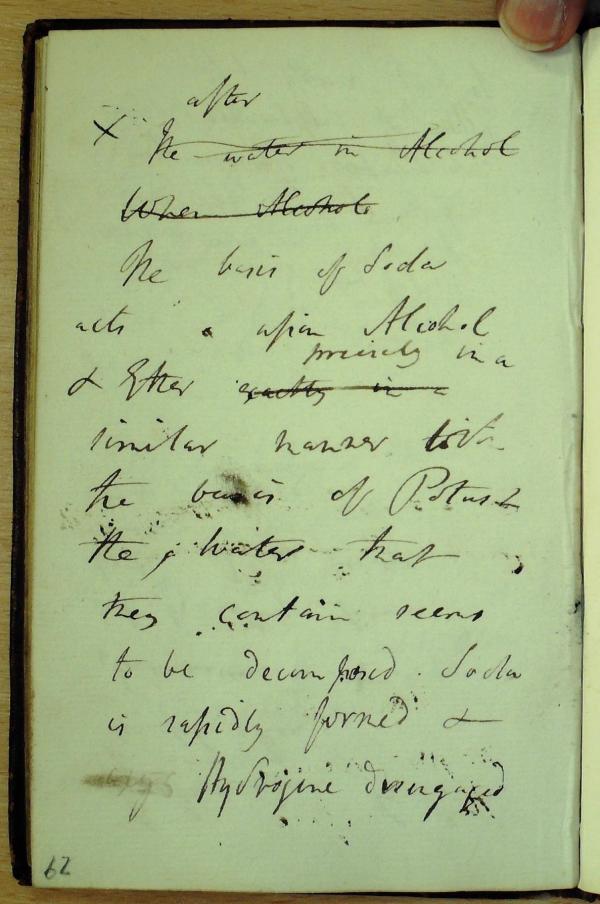 after
X The water in Alcohol
When Alcohol
The basis of Soda
acts upon Alcohol
precisely in a
& Ether exactly in a
similar manner with
the basis of Potash
the water that
they contain seems
to be decomposed. Soda
is rapidly formed &
Hydrogine disengaged
62